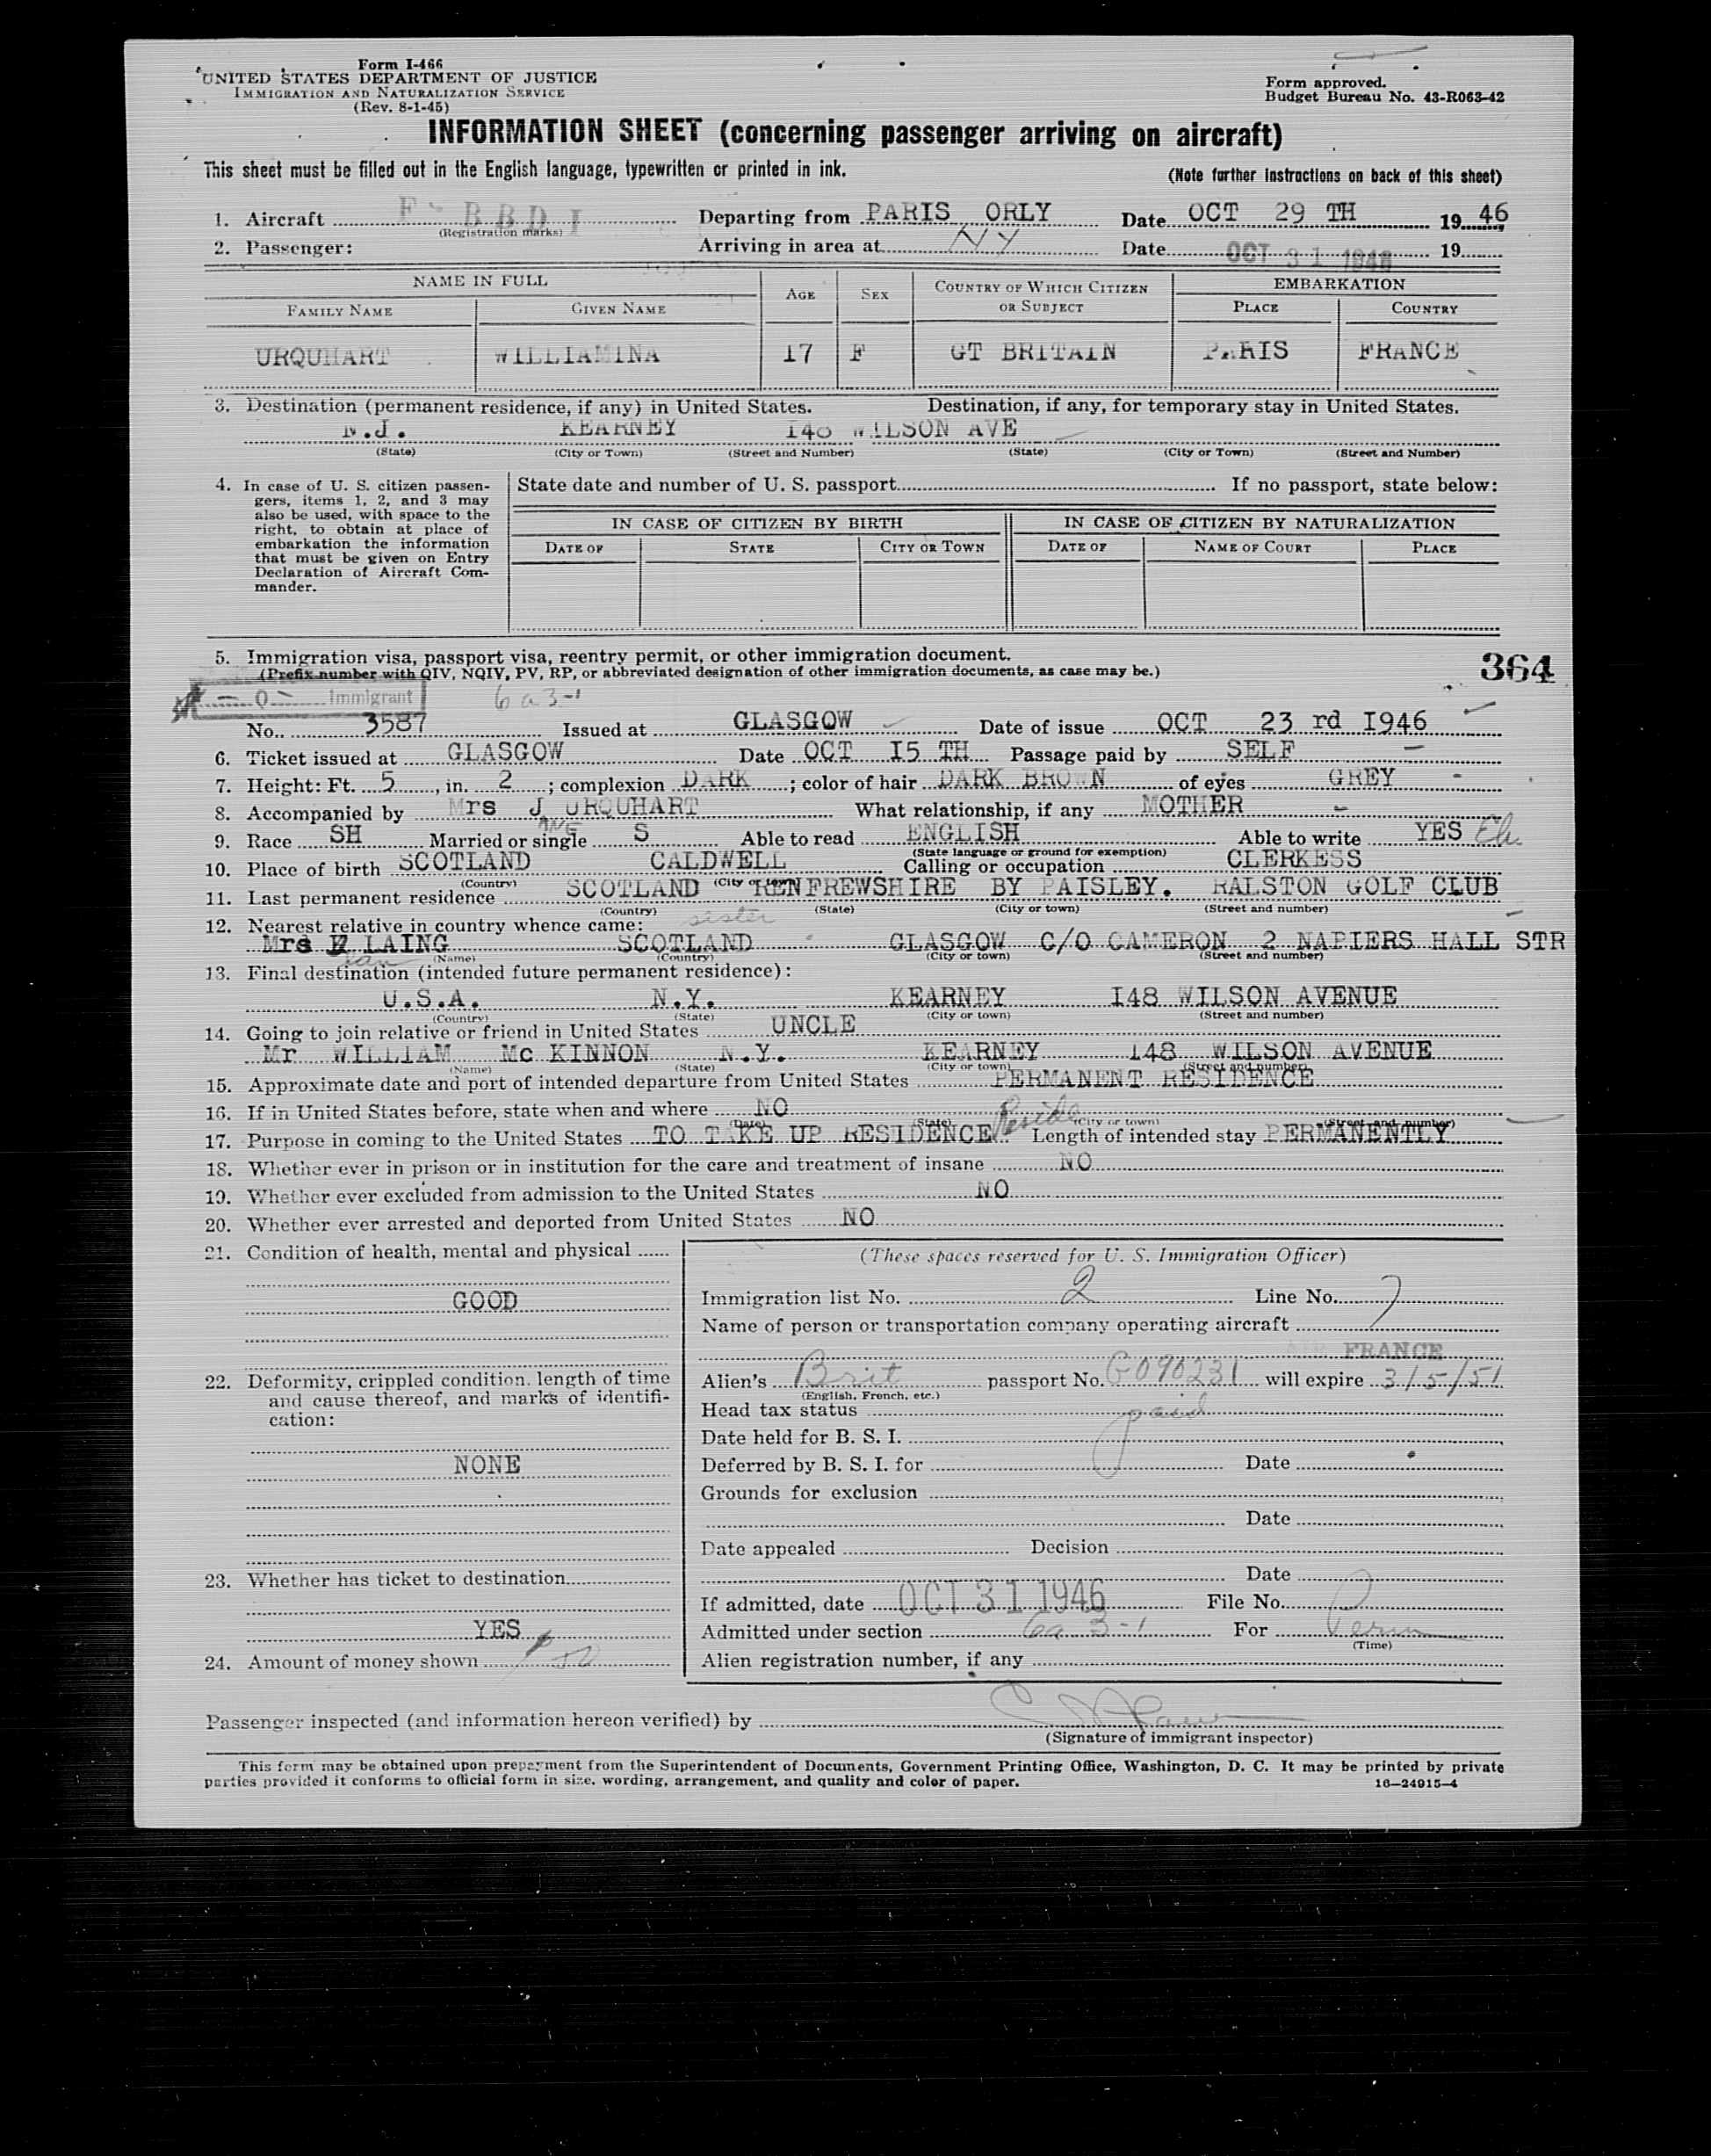 Form I-466
UNITED STATES DEPARTMENT OF JUSTICE
IMMIGRATION AND NATURALIZATION SERVICE
(Rev. 8-1-45)
Form approved.
Budget Bureau No. 43-R063-42
INFORMATION SHEET (concerning passenger arriving on aircraft)
This sheet must be filled out in the English language, typewritten or printed in ink. (Note further instructions on back of this sheet)
1. Aircraft F-BBDI Departing from PARIS ORLY Date OCT 29 TH 19 46
(Registration marks)
2. Passenger: Arriving in area at NY Date OCT 31 1946 19
NAME IN FULL AGE SEX COUNTRY OF WHICH CITIZEN OR SUBJECT EMBARKATION
FAMILY NAME GIVEN NAME PLACE COUNTRY
URQUHART WILLIAMINA 17 F GT BRITAIN PARIS FRANCE
3. Destination (permanent residence, if any) in United States. Destination, if any, for temporary stay in United States.
N.J. KEARNEY 148 WILSON AVE
(State) (City or Town) (Street and Number) (State) (City or Town) (Street and Number)
4. In case of U. S. citizen passen-
gers, items 1, 2, and 3 may
also be used, with space to the
right, to obtain at place of
embarkation the information
that must be given on Entry
Declaration of Aircraft Com-
mander.
State date and number of U. S. passport If no passport, state below:
IN CASE OF CITIZEN BY BIRTH IN CASE OF CITIZEN BY NATURALIZATION
DATE OF STATE CITY OR TOWN DATE OF NAME OF COURT PLACE
5. Immigration visa, passport visa, reentry permit, or other immigration document.
(Prefix number with QIV, NQIV, PV, RP, or abbreviated designation of other immigration documents, as case may be.)
364
Immigrant 6a3-1
No. 3587 Issued at GLASGOW Date of issue OCT 23 rd I946
6. Ticket issued at GLASGOW Date OCT I5 TH Passage paid by SELF
7. Height: Ft. 5, in. 2; complexion DARK; color of hair DARK BROWN of eyes GREY
8. Accompanied by Mrs J URQUHART What relationship, if any MOTHER
9. Race SH Married or single S Able to read ENGLISH Able to write YES
(State language or ground for exemption)
10. Place of birth SCOTLAND CALDWELL Calling or occupation CLERKESS
(Country) (City or town)
11. Last permanent residence SCOTLAND RENFREWSHIRE BY PAISLEY. RALSTON GOLF CLUB
(Country) (State) (City or town) (Street and number)
12. Nearest relative in country whence came: sister
Mrs LAING SCOTLAND GLASGOW C/O CAMERON 2 NAPIERS HALL STR
(Name) (Country) (City or town) (Street and number)
13. Final destination (intended future permanent residence):
U.S.A. N.Y. KEARNEY I48 WILSON AVENUE
(Country) (State) (City or town) (Street and number)
14. Going to join relative or friend in United States UNCLE
Mr WILLIAM Mc KINNON N.Y. KEARNEY 148 WILSON AVENUE
(Name) (State) (City or town) (Street and number)
15. Approximate date and port of intended departure from United States PERMANENT RESIDENCE
16. If in United States before, state when and where NO
(Date) (State) (City or town) (Street and number)
17. Purpose in coming to the United States TO TAKE UP RESIDENCE Reside Length of intended stay PERMANENTLY
18. Whether ever in prison or in institution for the care and treatment of insane NO
19. Whether ever excluded from admission to the United States NO
20. Whether ever arrested and deported from United States NO
21. Condition of health, mental and physical
GOOD
22. Deformity, crippled condition, length of time
and cause thereof, and marks of identifi-
cation:
NONE
23. Whether has ticket to destination
YES
24. Amount of money shown
(These spaces reserved for U. S. Immigration Officer)
Immigration list No. 2 Line No. 7
Name of person or transportation company operating aircraft
AIR FRANCE
Alien's Brit passport No. G090231 will expire 3/5/51
(English, French, etc.)
Head tax status paid
Date held for B. S. I.
Deferred by B. S. I. for Date
Grounds for exclusion
Date
Date appealed Decision
Date
If admitted, date OCT 31 1946 File No.
Admitted under section 6a 3-1 For Perm
(Time)
Alien registration number, if any
Passenger inspected (and information hereon verified) by
(Signature of immigrant inspector)
This form may be obtained upon prepayment from the Superintendent of Documents, Government Printing Office, Washington, D. C. It may be printed by private
parties provided it conforms to official form in size, wording, arrangement, and quality and color of paper. 16—24915-4